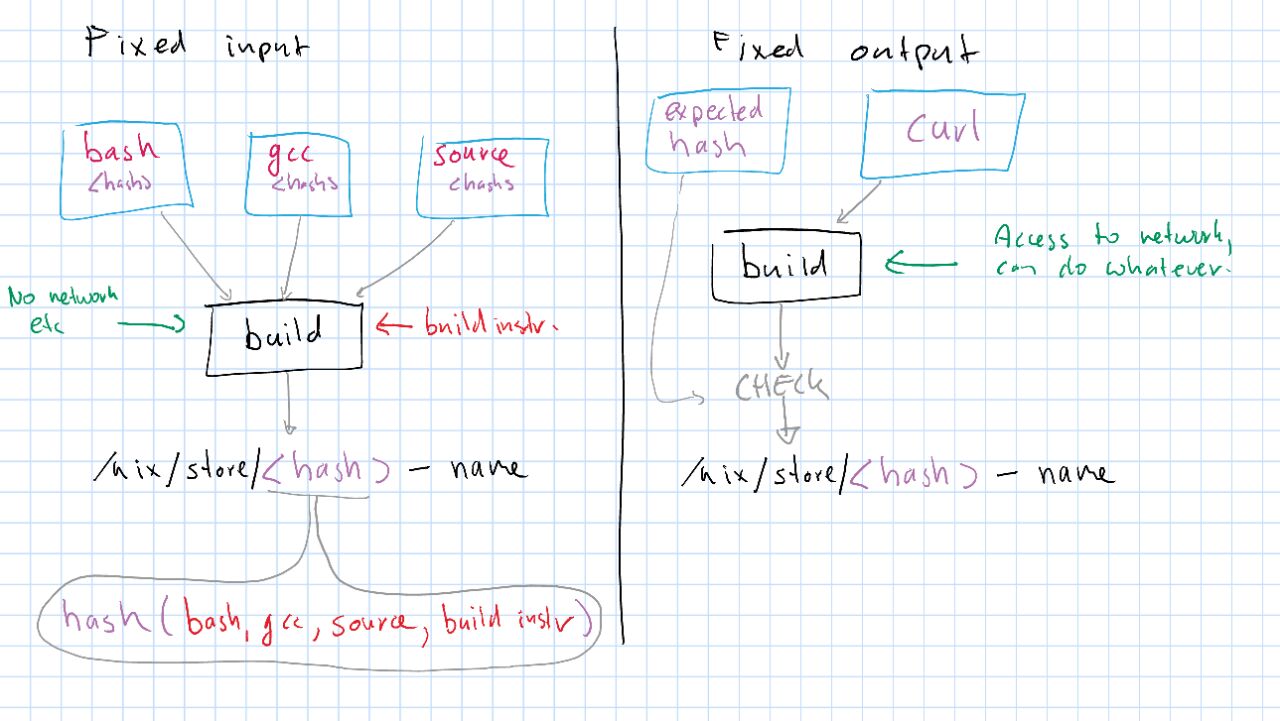 Fixed input
bash
<hash>
gcc
<hash>
source
<hash>
No network
etc
build
build instr.
/nix/store/<hash> - name
hash(bash, gcc, source, build instr)
Fixed output
expected
hash
curl
build
Access to network,
can do whatever.
CHECK
/nix/store/<hash> - name